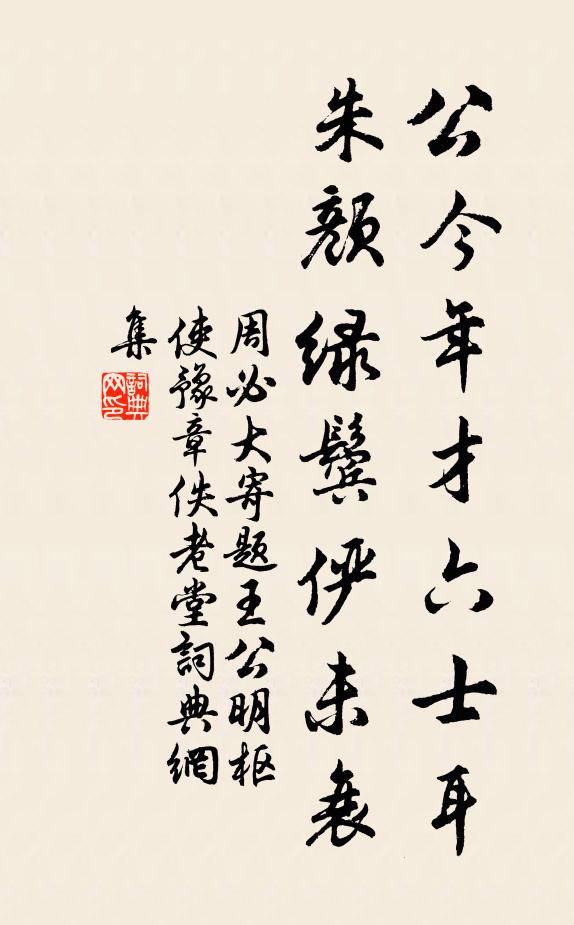 公今年才六士耳
朱颜绿鬓俨未衰
周必大寄题王公明枢
使豫章佚老堂詞典網
集
詞典網印